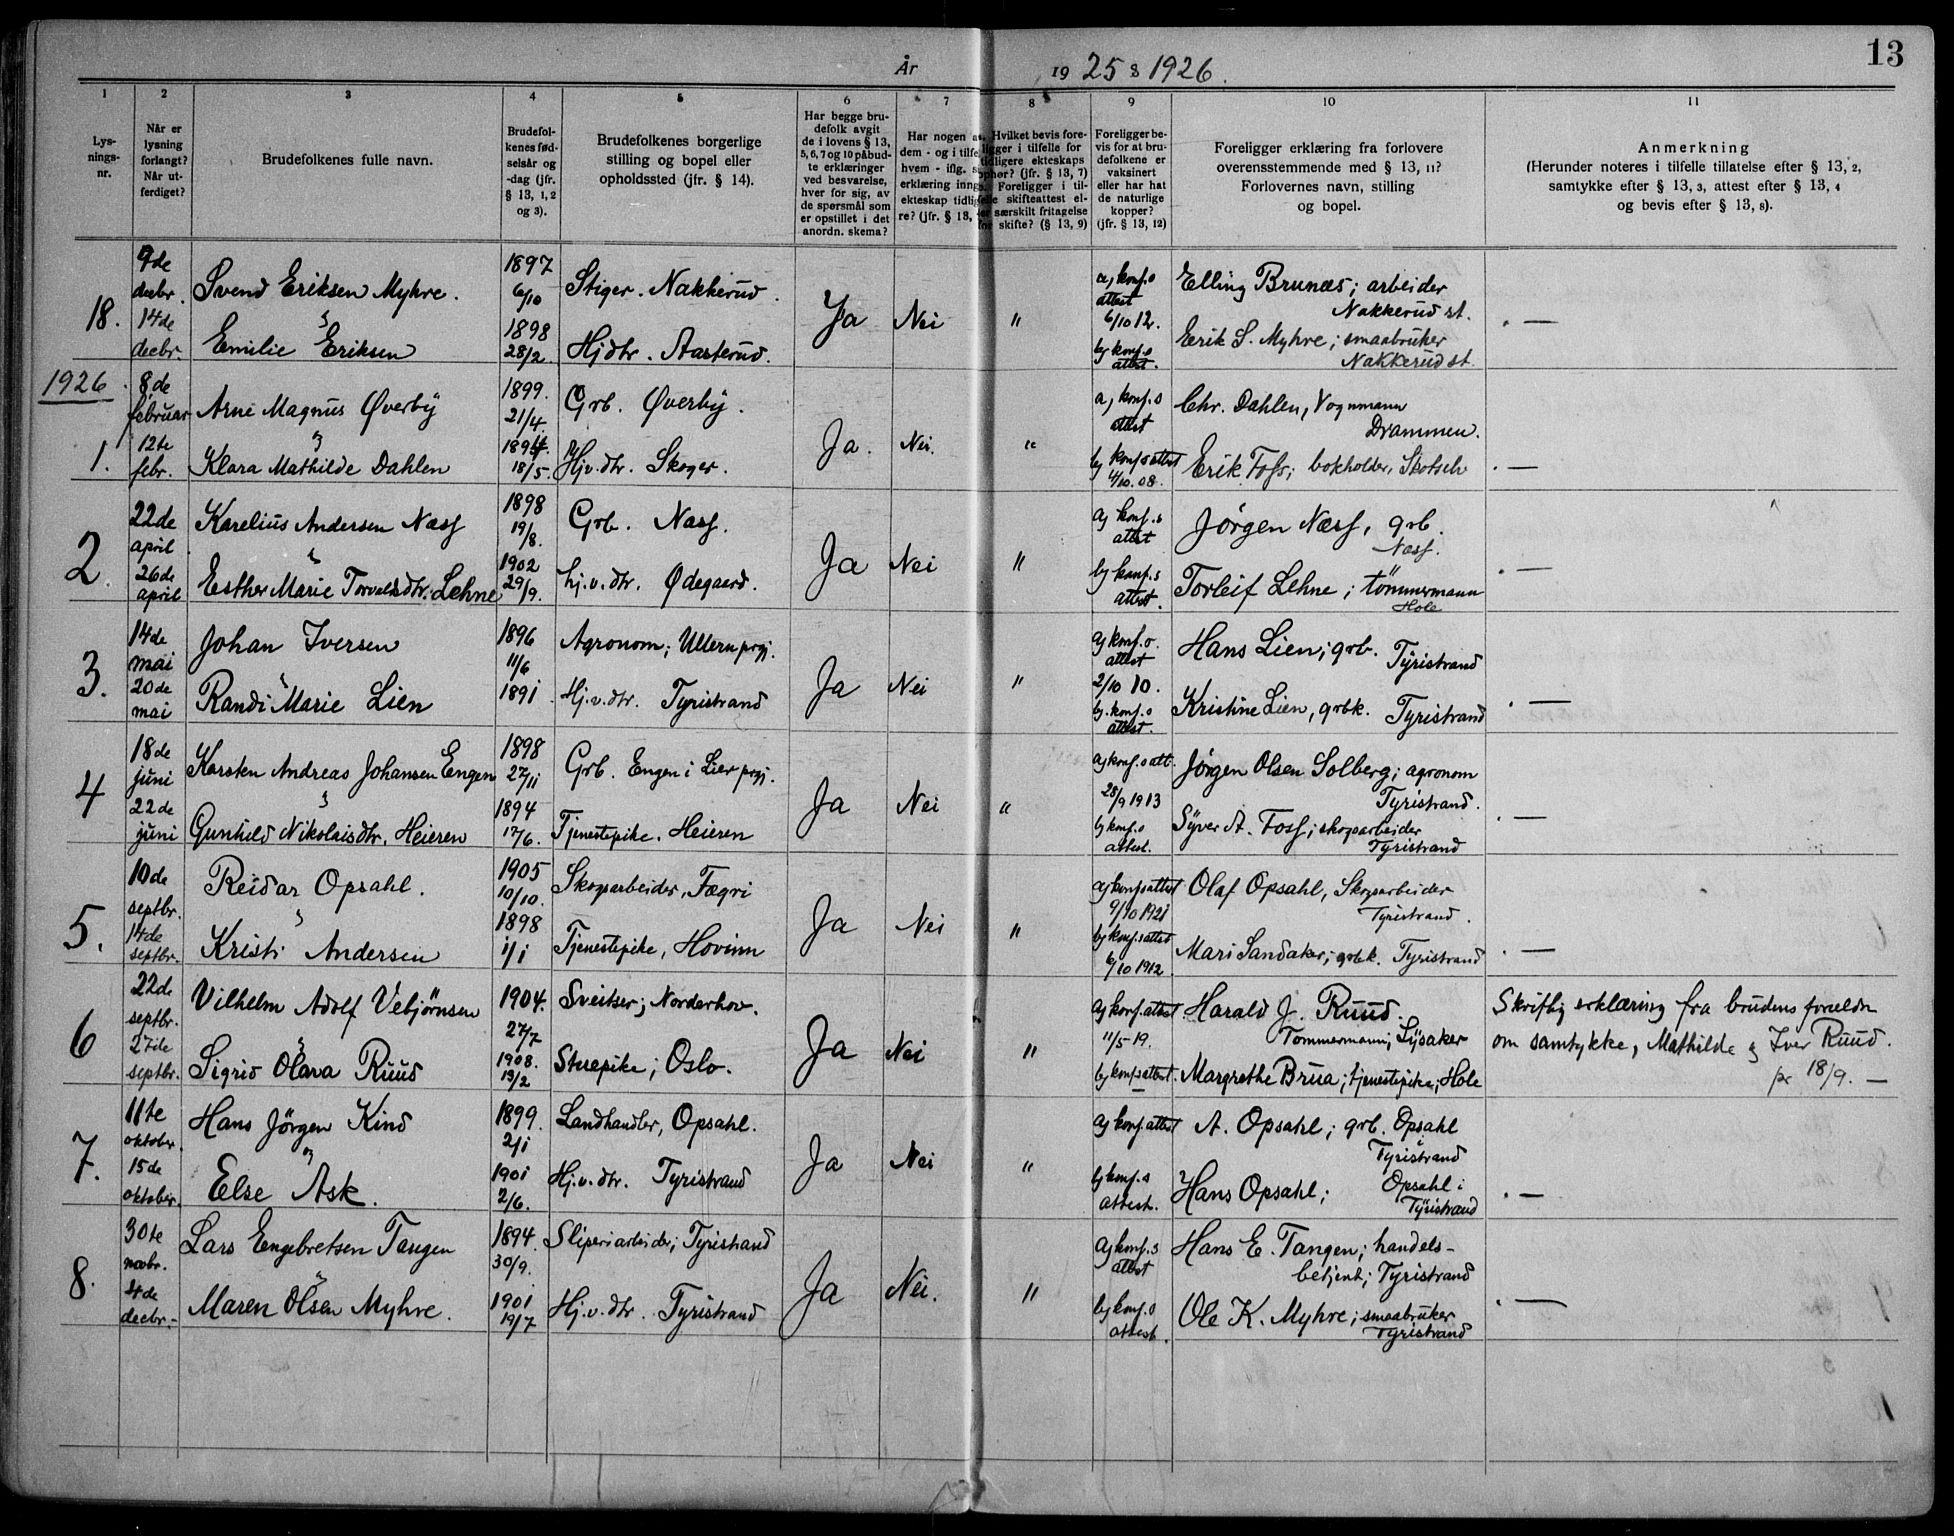 13
År 1925 & 1926.
1 2 3 4 5 6 7 8 9 10 11
Lys-
nings-
nr.
Når er
lysning
forlangt?
Når ut-
ferdiget?
Brudefolkenes fulle navn.
Brudefol-
kenes fød-
selsår og
-dag (jfr.
§ 13, 1, 2
og 3).
Brudefolkenes borgerlige
stilling og bopel eller
opholdssted (jfr. § 14).
Har begge bru-
defolk avgit
de i lovens § 13,
5, 6, 7 og 10 påbud-
te erklæringer
ved besvarelse,
hver for sig, av
de spørsmål som
er opstillet i det
anordn. skema?
Har nogen av
dem - og i tilfelle
hvem - iflg. s
erklæring inng.
ekteskap tidlig
re? (jfr. § 13,
Hvilket bevis fore-
ligger i tilfelle for
tidligere ekteskaps
ophør? (jfr. § 13, 7)
Foreligger i til-
felle skifteattest el-
ler særskilt fritagelse
for skifte? (§ 13, 9)
Foreligger be-
vis for at bru-
defolkene er
vaksinert
eller har hat
de naturlige
kopper?
(jfr. § 13, 12)
Foreligger erklæring fra forlovere
overensstemmende med § 13, 11?
Forlovernes navn, stilling
og bopel.
Anmerkning
(Herunder noteres i tilfelle tillatelse efter § 13, 2,
samtykke efter § 13, 3, attest efter § 13, 4
og bevis efter § 13, 8).
18.
9de
decbr.
14de
decbr.
Svend Eriksen Myhre.
&
Emilie Eriksen
1897
6/10
1898
28/2
Stiger. Nakkerud.
Hjdtr. Aasterud.
Ja Nei "
a, konf.s
attest
6/10 12.
b, konf.s
attest.
Elling Brunæs; arbeider
Nakkerud st.
Erik S. Myhre; smaabruker
Nakkerud st.
. —
1926
1.
8de
februar
12te
febr.
Arne Magnus Øverby
&
Klara Mathilde Dahlen
1899.
21/4.
1894
18/5.
Grb. Øverby.
Hjv.dtr. Skoger.
Ja. Nei. "
a, konf.s
attest
b, konfsattest
4/10.08.
Chr. Dahlen, Vognmann
Drammen.
Erik Foss; bokholder, Skotselv
. —
2.
22de
april
26de
april
Karelius Andersen Næss
&
Esther Marie Torvelsdtr. Lehne
1898
19/8.
1902
29/9.
Grb. Næss.
hj.v.dtr. Ødegaard.
Ja Nei "
a, konf.s
attest
b, konf.s
attest.
Jörgen Næss, grb.
Næss.
Torleif Lehne; tömmermann
Hole
. —
3.
14de
mai
20de
mai
Johan Iversen
&
Randi Marie Lien
1896
11/6
1891
Agronom; Ullern prgj.
Hj.v.dtr. Tyristrand
Ja Nei "
a, konf.s.
attest
2/10 10.
b, konf.s
attest.
Hans Lien; grb. Tyristrand
Kristine Lien, grbk. Tyristrand
. —
4
18de
juni
22de
juni
Karsten Andreas Johansen Engen
&
Gunhild Nikolaisdtr. Heieren
1898
27/11
1894
17/6.
Grb. Engen i Lier prgj.
Tjenestepike. Heieren
Ja Nei "
a, konf.s att.
28/9 1913
b, konf.s
attest.
Jörgen Olsen Solberg; agronom
Tyristrand.
Syver A. Foss; skogsarbeider
Tyristrand
. —
5.
10de
septbr.
14de
septbr.
Reidar Opsahl.
&
Kristi Andersen
1905
10/10.
1898
1/1
Skogsarbeider, Fægri
Tjenestepike, Hovinn
Ja Nei "
a, konfsattest
9/10 1921
b, konfsattest
6/10 1912
Olaf Opsahl, Skogsarbeider
Tyristrand.
Mari Sandaker; grbk. Tyristrand
. —
6
22de
septbr.
27de
septbr.
Vilhelm Adolf Vebjörnsen
&
Sigrid Olava Ruud
1904.
27/7
1908.
19/2
Sveitser; Norderhov.
Stuepike; Oslo.
Ja Nei "
a, konf.attest
11/5-19.
b, konfsattest.
Harald J. Ruud.
Tømmermann; Lysaker
Margrethe Brua; tjenestepike; Hole
Skriftlig erklæring fra brudens foreldre
om samtykke, Mathilde & Iver Ruud.
pr 18/9. —
7.
11te
oktober.
15de
oktober.
Hans Jörgen Kind
&
Else Ask.
1899.
2/1
1901
2/6.
Landhandler, Opsahl.
Hj.v.dtr. Tyristrand
Ja Nei "
a, konf.attest
b, konf.s
attest.
A. Opsahl; grb. Opsahl
Tyristrand
Hans Opsahl; Opsahl i
Tyristrand
. —
8.
30te
novbr.
4de
decbr.
Lars Engebretsen Tangen
&
Maren Olsen Myhre.
1894.
30/9.
1901
19/7
Sliperiarbeider; Tyristrand
Hj.v.dtr. Tyristrand
Ja Nei. "
a, konf.s
attest
b, konf.s
attest.
Hans E. Tangen; handels-
betjent; Tyristrand
Ole K. Myhre; smaabruker
Tyristrand
. —